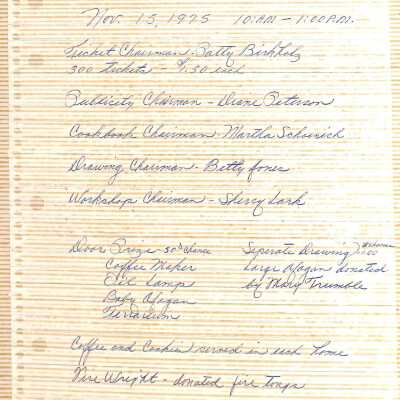 Nov. 15, 1975 10:AM - 1:00 P.M.
Ticket Chairman - Patty Birkholz
300 tickets - $1.50 each
Publicity Chairman - Diane Peterson
Cookbook Chairman - Martha
Drawing Chairman - Betty Jones
Workshop Chairman - Sherry Lark
Door Prize - 50¢ chance
Seperate Drawing
Coffee Maker
Large Afagan donated
Oil Lamp
by Mary Trumble
Baby Afagan
Terrarium
Coffee and Cookies served in each home
Wright - donated fire tongs